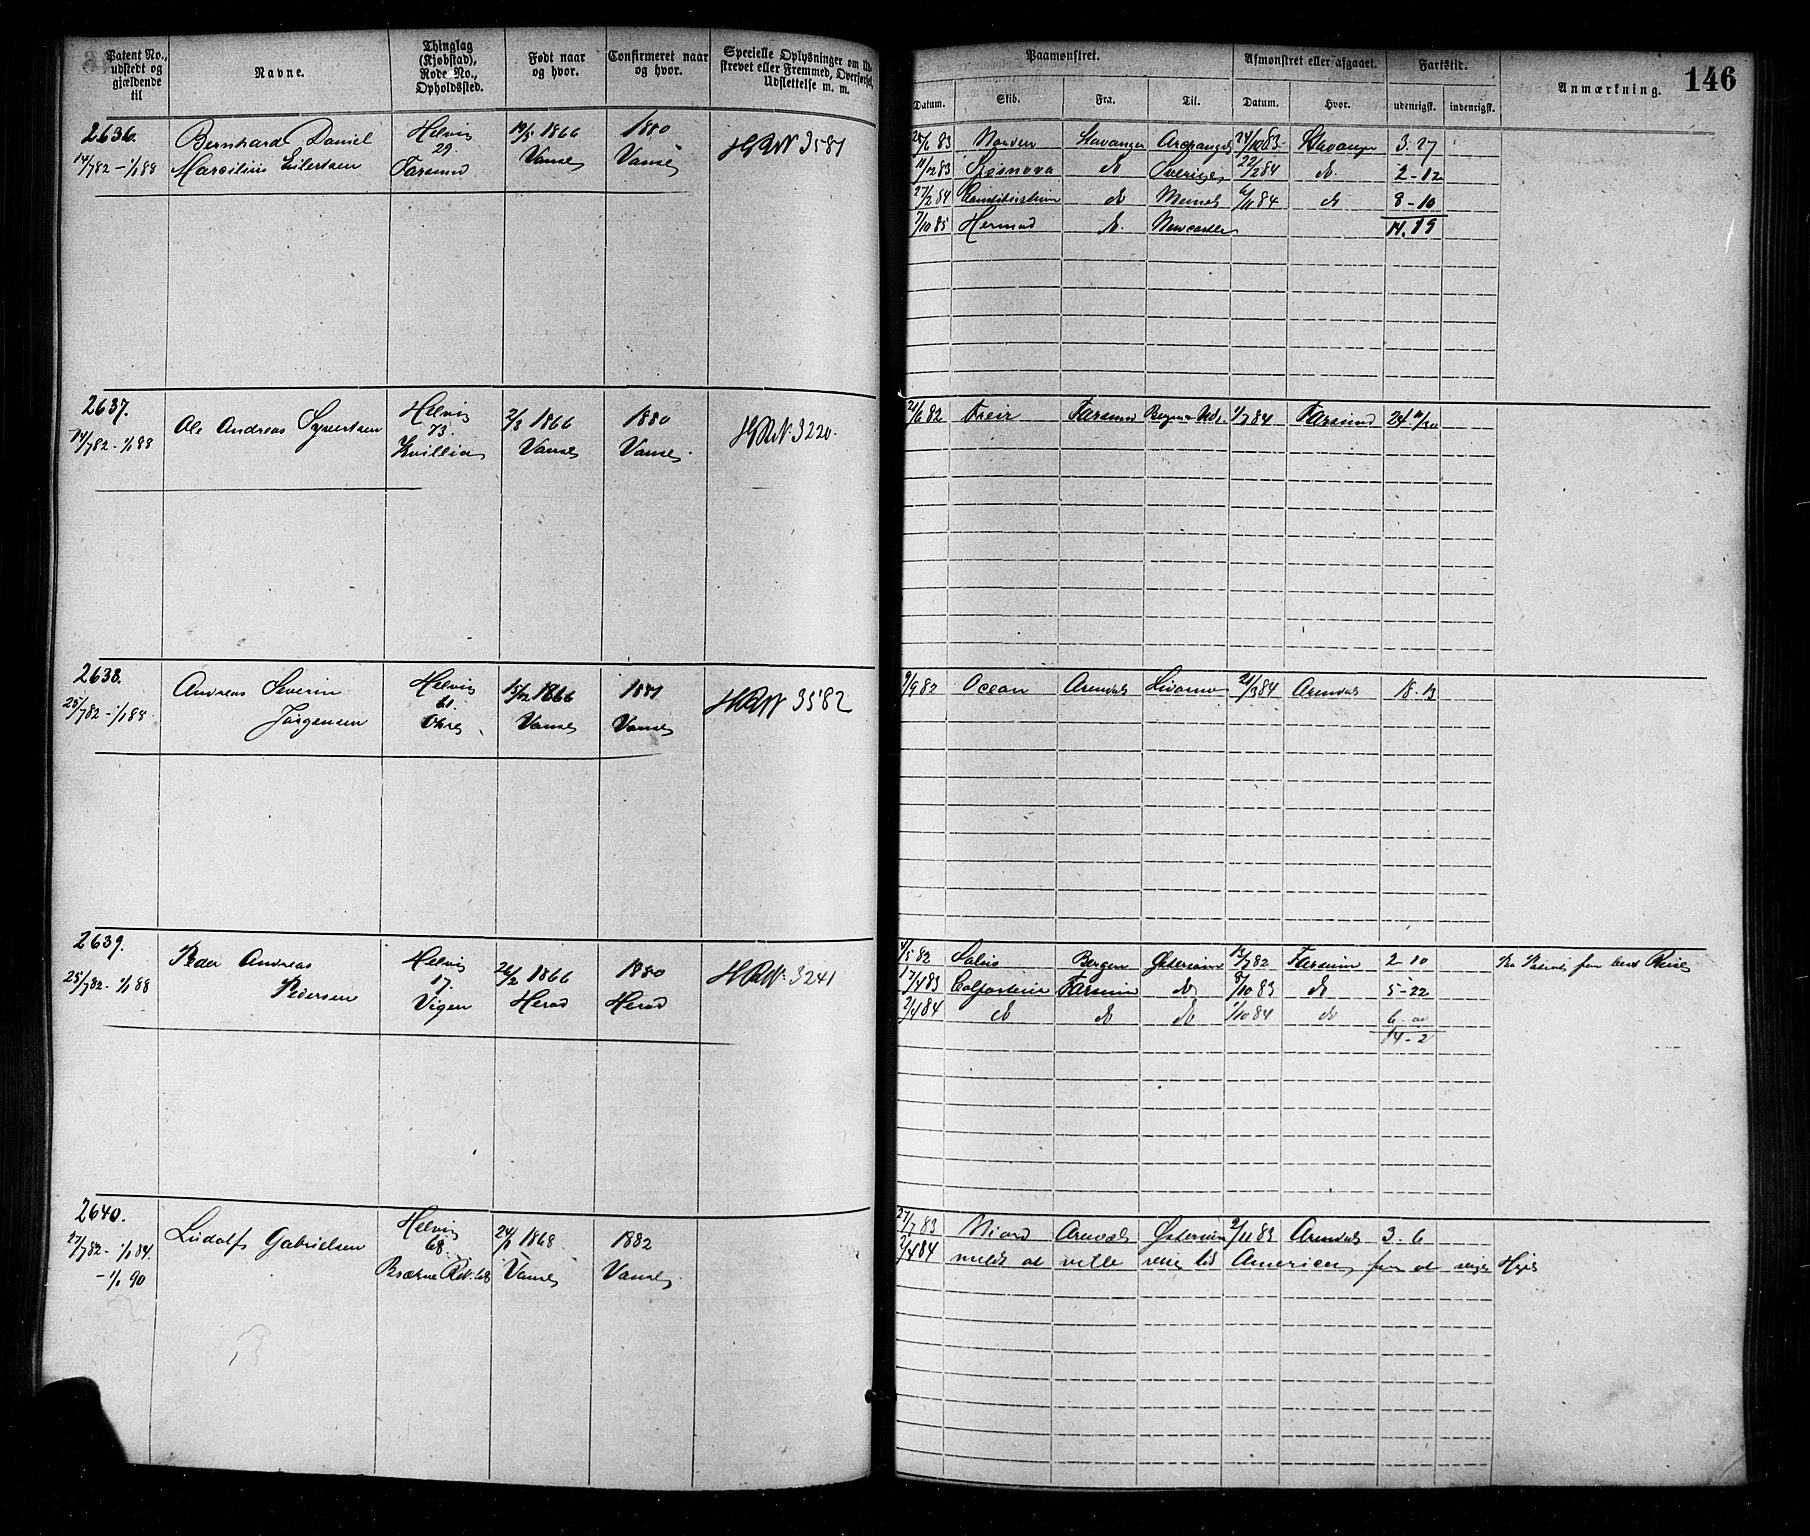 146
Patent No., udstedt og gjældende til
Navne.
Thinglag (Kjøbstad), Rode No., Opholdssted.
Født naar og hvor.
Confirmeret naar og hvor.
Specielle Oplysninger om Udstrevet eller Fremmed, Overførsel, Udslettelse m. m.
Paamønstret.
Afmønstret eller afgaaet.
Fartstid.
Anmærkning.
Datum. Skib. Fra. Til. Datum. Hvor. udenrigsk. indenrigsk.
2636.
14/7 82 - 1/1 88
Bernhard Daniel
Marcilius Eilertsen
Helvig
29
Farsund
1866
Vanse
1880
Vanse
3581
25/6 83 Stavanger Archangel 24/10 83 Stavanger 3-27
11/12 83 do Sverige 22/2 84 do 2-12
27/2 84 do Memel 6/11 84 do 8-10
7/10 85 Hermod do. Newcastle 14.19
2637.
14/7 82 - 1/1 88
Ole Andreas Syvertsen
Helvig
73.
Kvillia
2/3 1866
Vanse
1880
Vanse
3220.
21/6 82 Freir Farsund 84 Farsund
2638.
25/7 82 - 1/1 88
Andreas Severin
Jørgensen
Helvig
61
Ohre
15/12 1866
Vanse
1881
Vanse
3582
9/9 82 Ocean Arendal Livorno 21/3 84 Arendal 18-13
2639.
25/7 82 - 1/1 88
Peder Andreas
Pedersen
Helvig
17.
Vigen
26/2 1866
Herad
1880
Herad
3241
4/5 82 Bergen Østersøen 82 Farsund 2-10
17/4 83 Farsund do 8/10 83 do 5-22
2/4 84 do do do 1/10 84 do
14-2
2640.
27/7 82 - 1/1 84.
- 1/1 90
Ludolf Gabrielsen
Helvig
68
24/1 1868
Vanse
1882
Vanse
27/7 83 Niord Arendal Østersøen 2/11 83 Arendal 3-6
2/4 84 meldt at ville reise til America